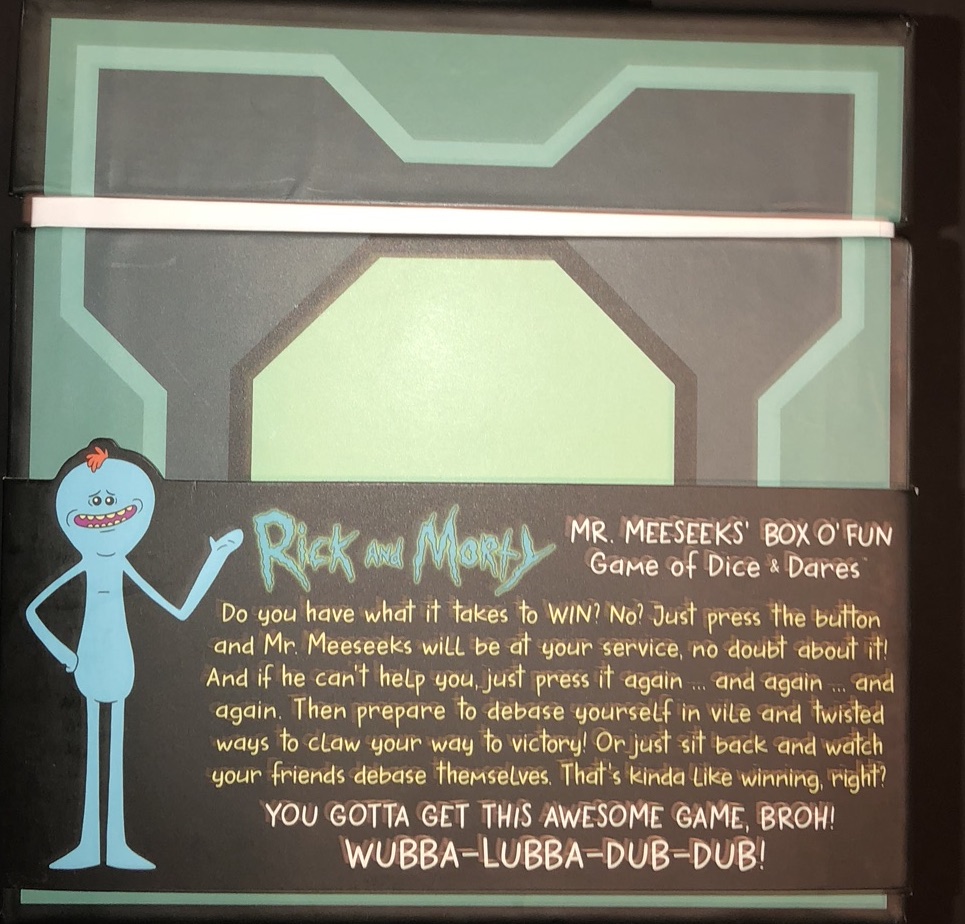 Rick and Morty
MR. MEESEEKS' BOX O' FUN
Game of Dice & Dares
Do you have what it takes to WIN? No? Just press the button
and Mr. Meeseeks will be at your service, no doubt about it!
And if he can't help you, just press it again ... and again ... and
again. Then prepare to debase yourself in vile and twisted
ways to claw your way to victory! Or just sit back and watch
your friends debase themselves. That's kinda like winning, right?
YOU GOTTA GET THIS AWESOME GAME, BROH!
WUBBA-LUBBA-DUB-DUB!